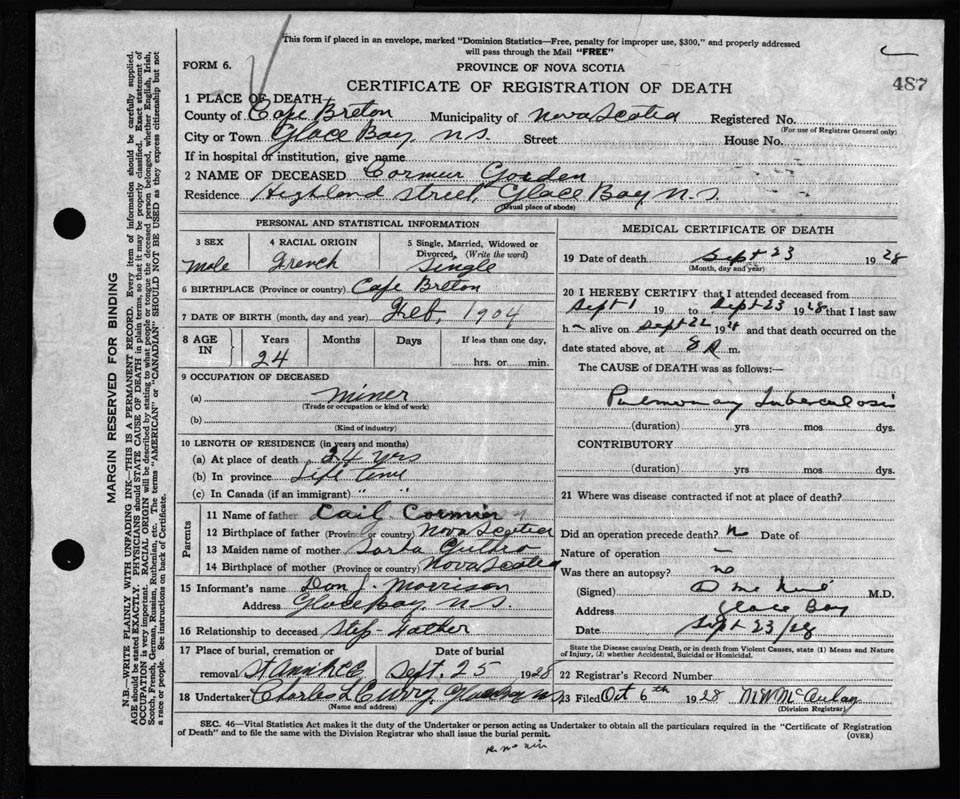 This form if placed in an envelope, marked "Dominion Statistics—Free, penalty for improper use, $300," and properly addressed
will pass through the Mail "FREE"
FORM 6.
PROVINCE OF NOVA SCOTIA
487
CERTIFICATE OF REGISTRATION OF DEATH
1 PLACE OF DEATH
County of Cape Breton Municipality of Nova Scotia Registered No.
(For use of Registrar General only)
City or Town Glace Bay, N.S. Street House No.
If in hospital or institution, give name
2 NAME OF DECEASED Cormier Gorden
Residence Highland Street, Glace Bay N.S.
(Usual place of abode)
PERSONAL AND STATISTICAL INFORMATION
3 SEX 4 RACIAL ORIGIN 5 Single, Married, Widowed or
Divorced, (Write the word)
Male French Single
6 BIRTHPLACE (Province or country) Cape Breton
7 DATE OF BIRTH (month, day and year) Feb, 1904
8 AGE IN Years Months Days If less than one day,
24 hrs. or min.
9 OCCUPATION OF DECEASED
(a) Miner
(Trade or occupation or kind of work)
(b)
(Kind of industry)
10 LENGTH OF RESIDENCE (in years and months)
(a) At place of death 24 yrs
(b) In province Life time
(c) In Canada (if an immigrant) " "
Parents
11 Name of father Cormier
12 Birthplace of father (Province or country) Nova Scotia
13 Maiden name of mother
14 Birthplace of mother (Province or country) Nova Scotia
15 Informant's name Dan J. Morrison
Address Glace Bay, N.S.
16 Relationship to deceased Step-Father
17 Place of burial, cremation or Date of burial
removal Sept. 25 1928
18 Undertaker Charles L Curry, Glace Bay N.S.
(Name and address)
MEDICAL CERTIFICATE OF DEATH
19 Date of death Sept 23 1928
(Month, day and year)
20 I HEREBY CERTIFY that I attended deceased from
Sept 1 19 to Sept 23 1928 that I last saw
h alive on Sept 22 1928 and that death occurred on the
date stated above, at 8 m.
The CAUSE of DEATH was as follows:—
Pulmonary Tuberculosis
(duration) yrs mos dys.
CONTRIBUTORY
(duration) yrs mos dys.
21 Where was disease contracted if not at place of death?
Did an operation precede death? N Date of
Nature of operation —
Was there an autopsy? no
(Signed) M.D.
Address Glace Bay
Date Sept 23/28
State the Disease causing Death, or in death from Violent Causes, state (1) Means and Nature
of Injury, (2) whether Accidental, Suicidal or Homicidal.
22 Registrar's Record Number
23 Filed Oct 6th 1928
(Division Registrar)
SEC. 46—Vital Statistics Act makes it the duty of the Undertaker or person acting as Undertaker to obtain all the particulars required in the "Certificate of Registration
of Death" and to file the same with the Division Registrar who shall issue the burial permit. (OVER)
MARGIN RESERVED FOR BINDING
N.B.—WRITE PLAINLY WITH UNFADING INK—THIS IS A PERMANENT RECORD. Every item of information should be carefully supplied.
AGE should be stated EXACTLY. PHYSICIANS should STATE CAUSE OF DEATH in plain terms, so that it may be properly classified. Exact statement of
OCCUPATION is very important. RACIAL ORIGIN will be described by stating to what people or tongue the deceased person belonged, whether English, Irish,
Scotch, French, German, Russian, Ruthenian, etc. The terms "AMERICAN" or "CANADIAN" SHOULD NOT BE USED as they express citizenship but not
a race or people. See instructions on back of Certificate.